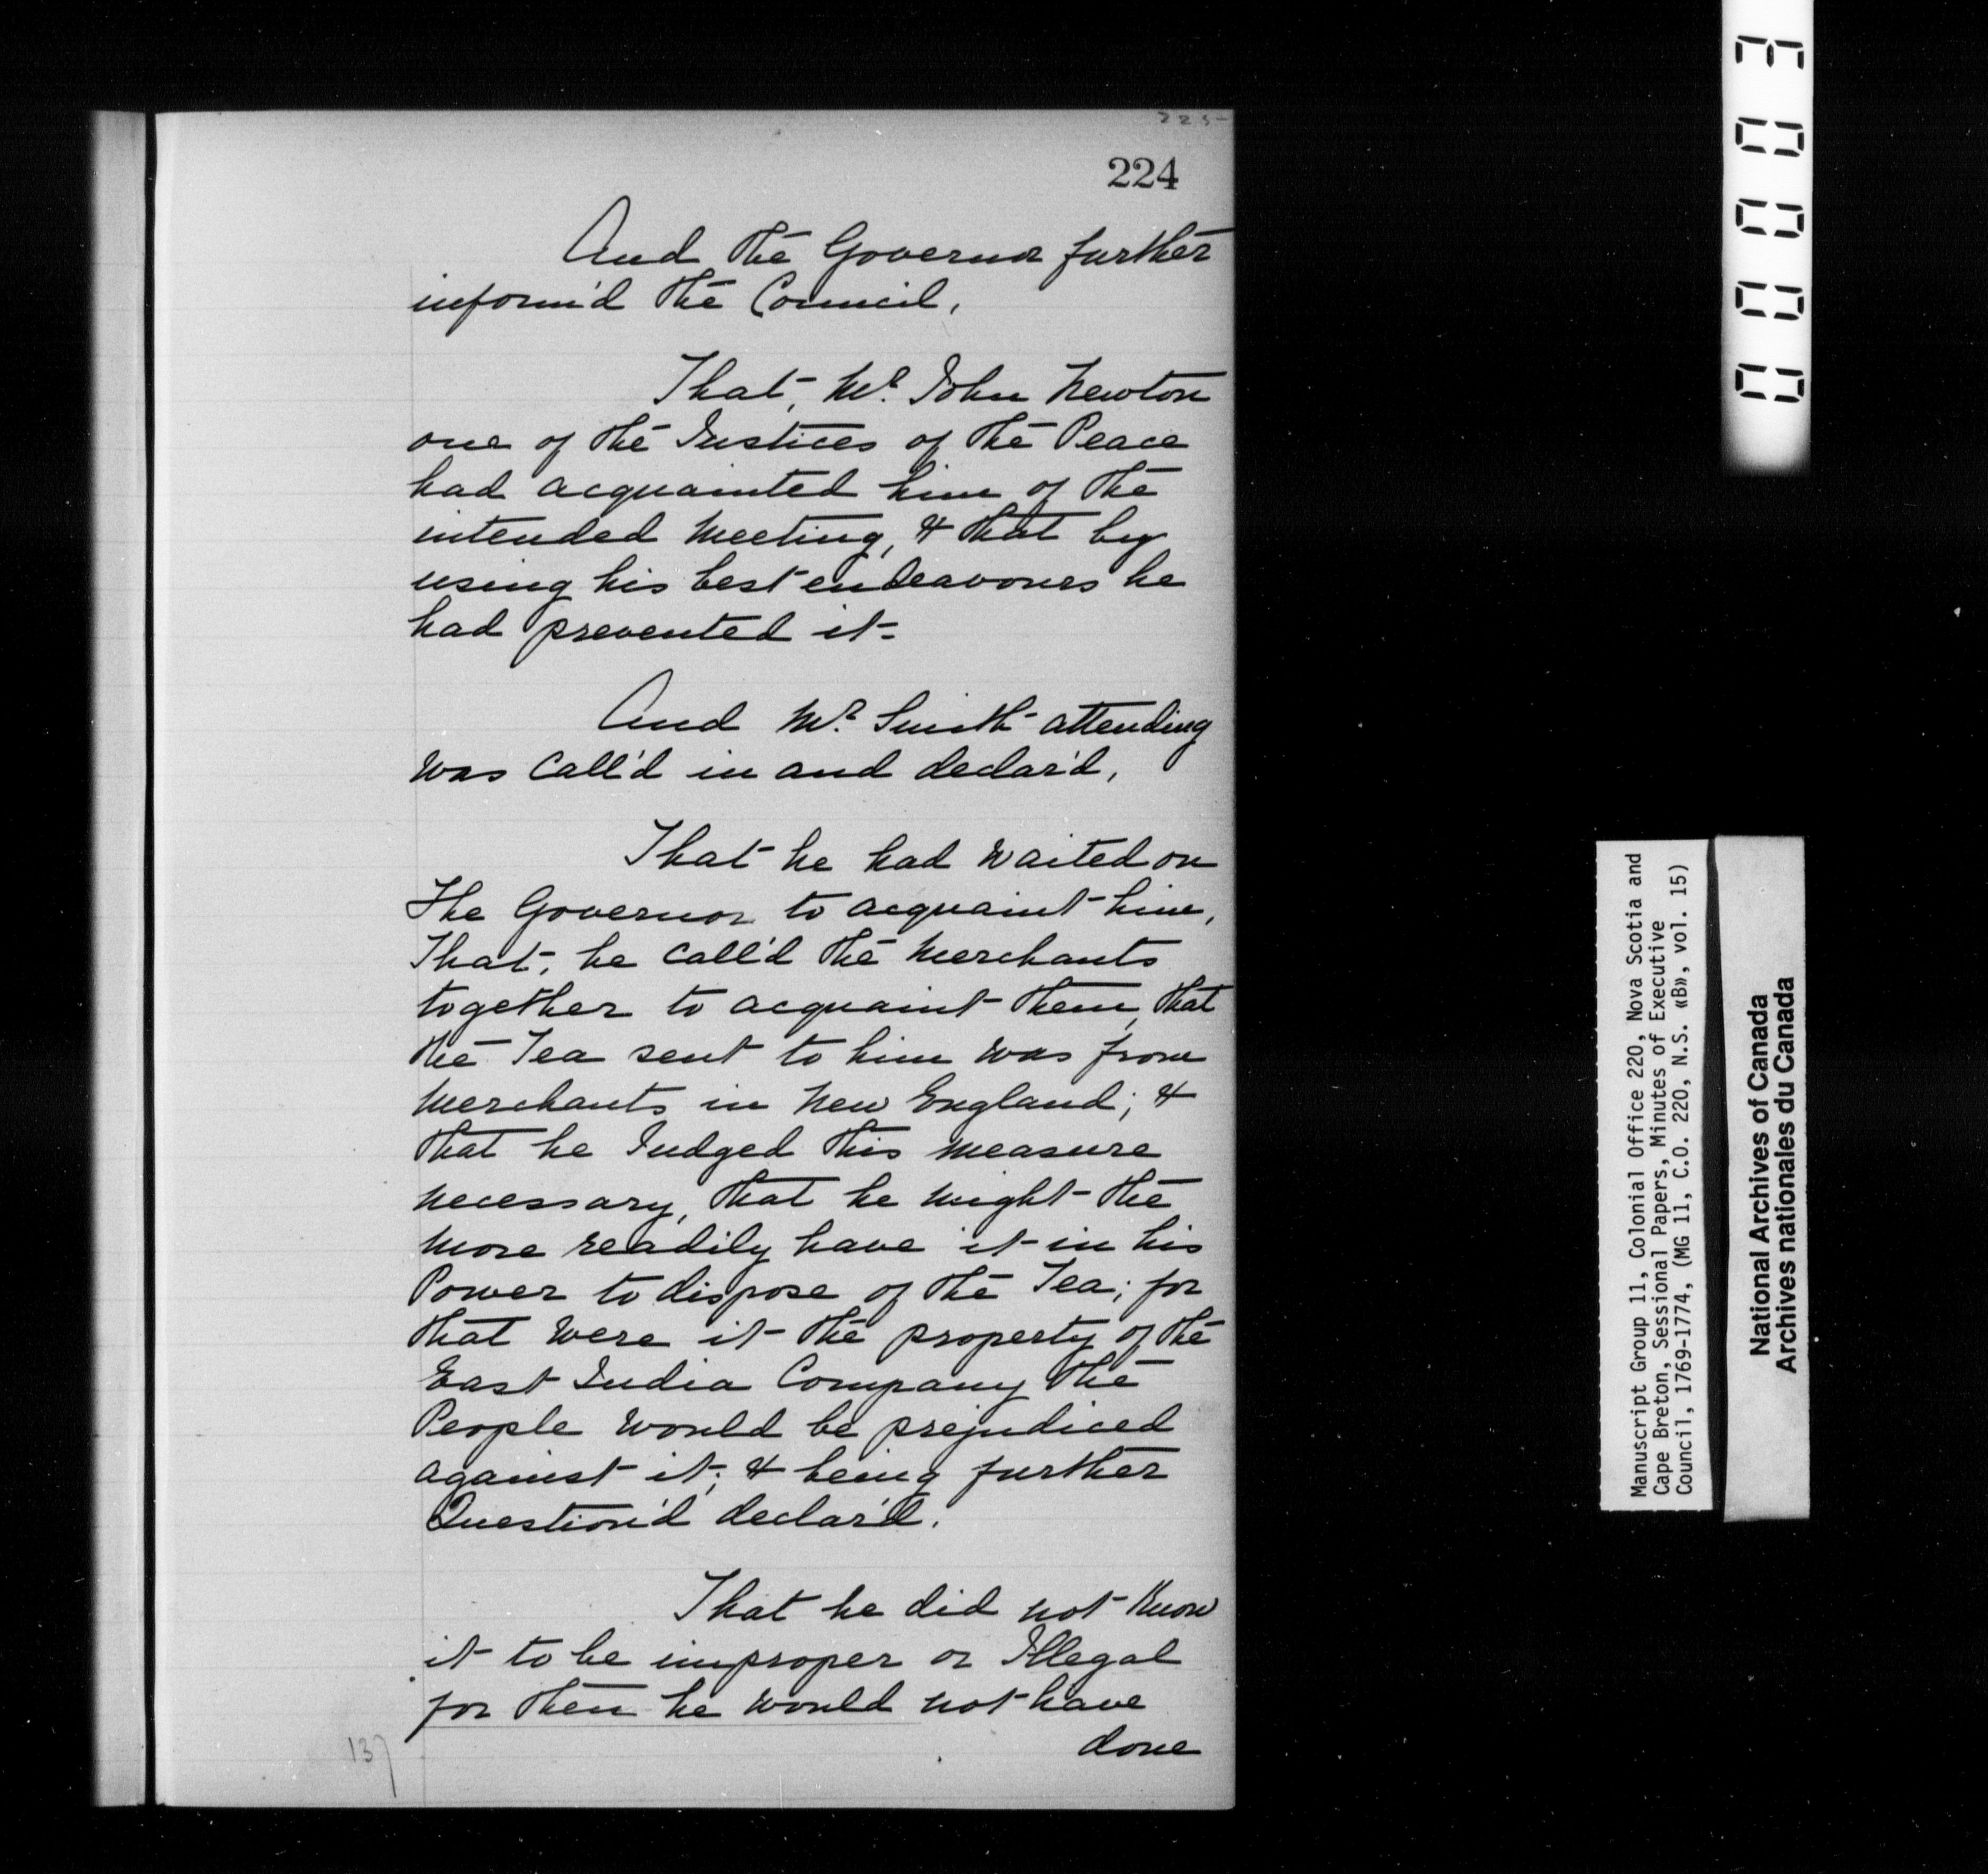 225
224
And the Governor further
inform'd the Council,
That, Mr. John Newton
one of the Justices of the Peace
had acquainted him of the
intended Meeting, & that by
using his best endeavours he
had prevented it.
And Mr. Smith attending
was Call'd in and declar'd,
That he had Waited on
The Governor to acquaint him,
That, he Call'd the Merchants
together to acquaint them, that
the Tea sent to him was from
Merchants in New England; &
that he Judged this measure
necessary, that he might the
more readily have it in his
Power to dispose of the Tea; for
that were it the property of the
East India Company the
People would be prejudiced
against it; & being further
Question'd declar'd.
That he did not Know
it to be improper or Illegal
for then he would not have
done
137
00003
Manuscript Group 11, Colonial Office 220, Nova Scotia and
Cape Breton, Sessional Papers, Minutes of Executive
Council, 1769-1774, (MG 11, C.O. 220, N.S. «B», vol. 15)
National Archives of Canada
Archives nationales du Canada